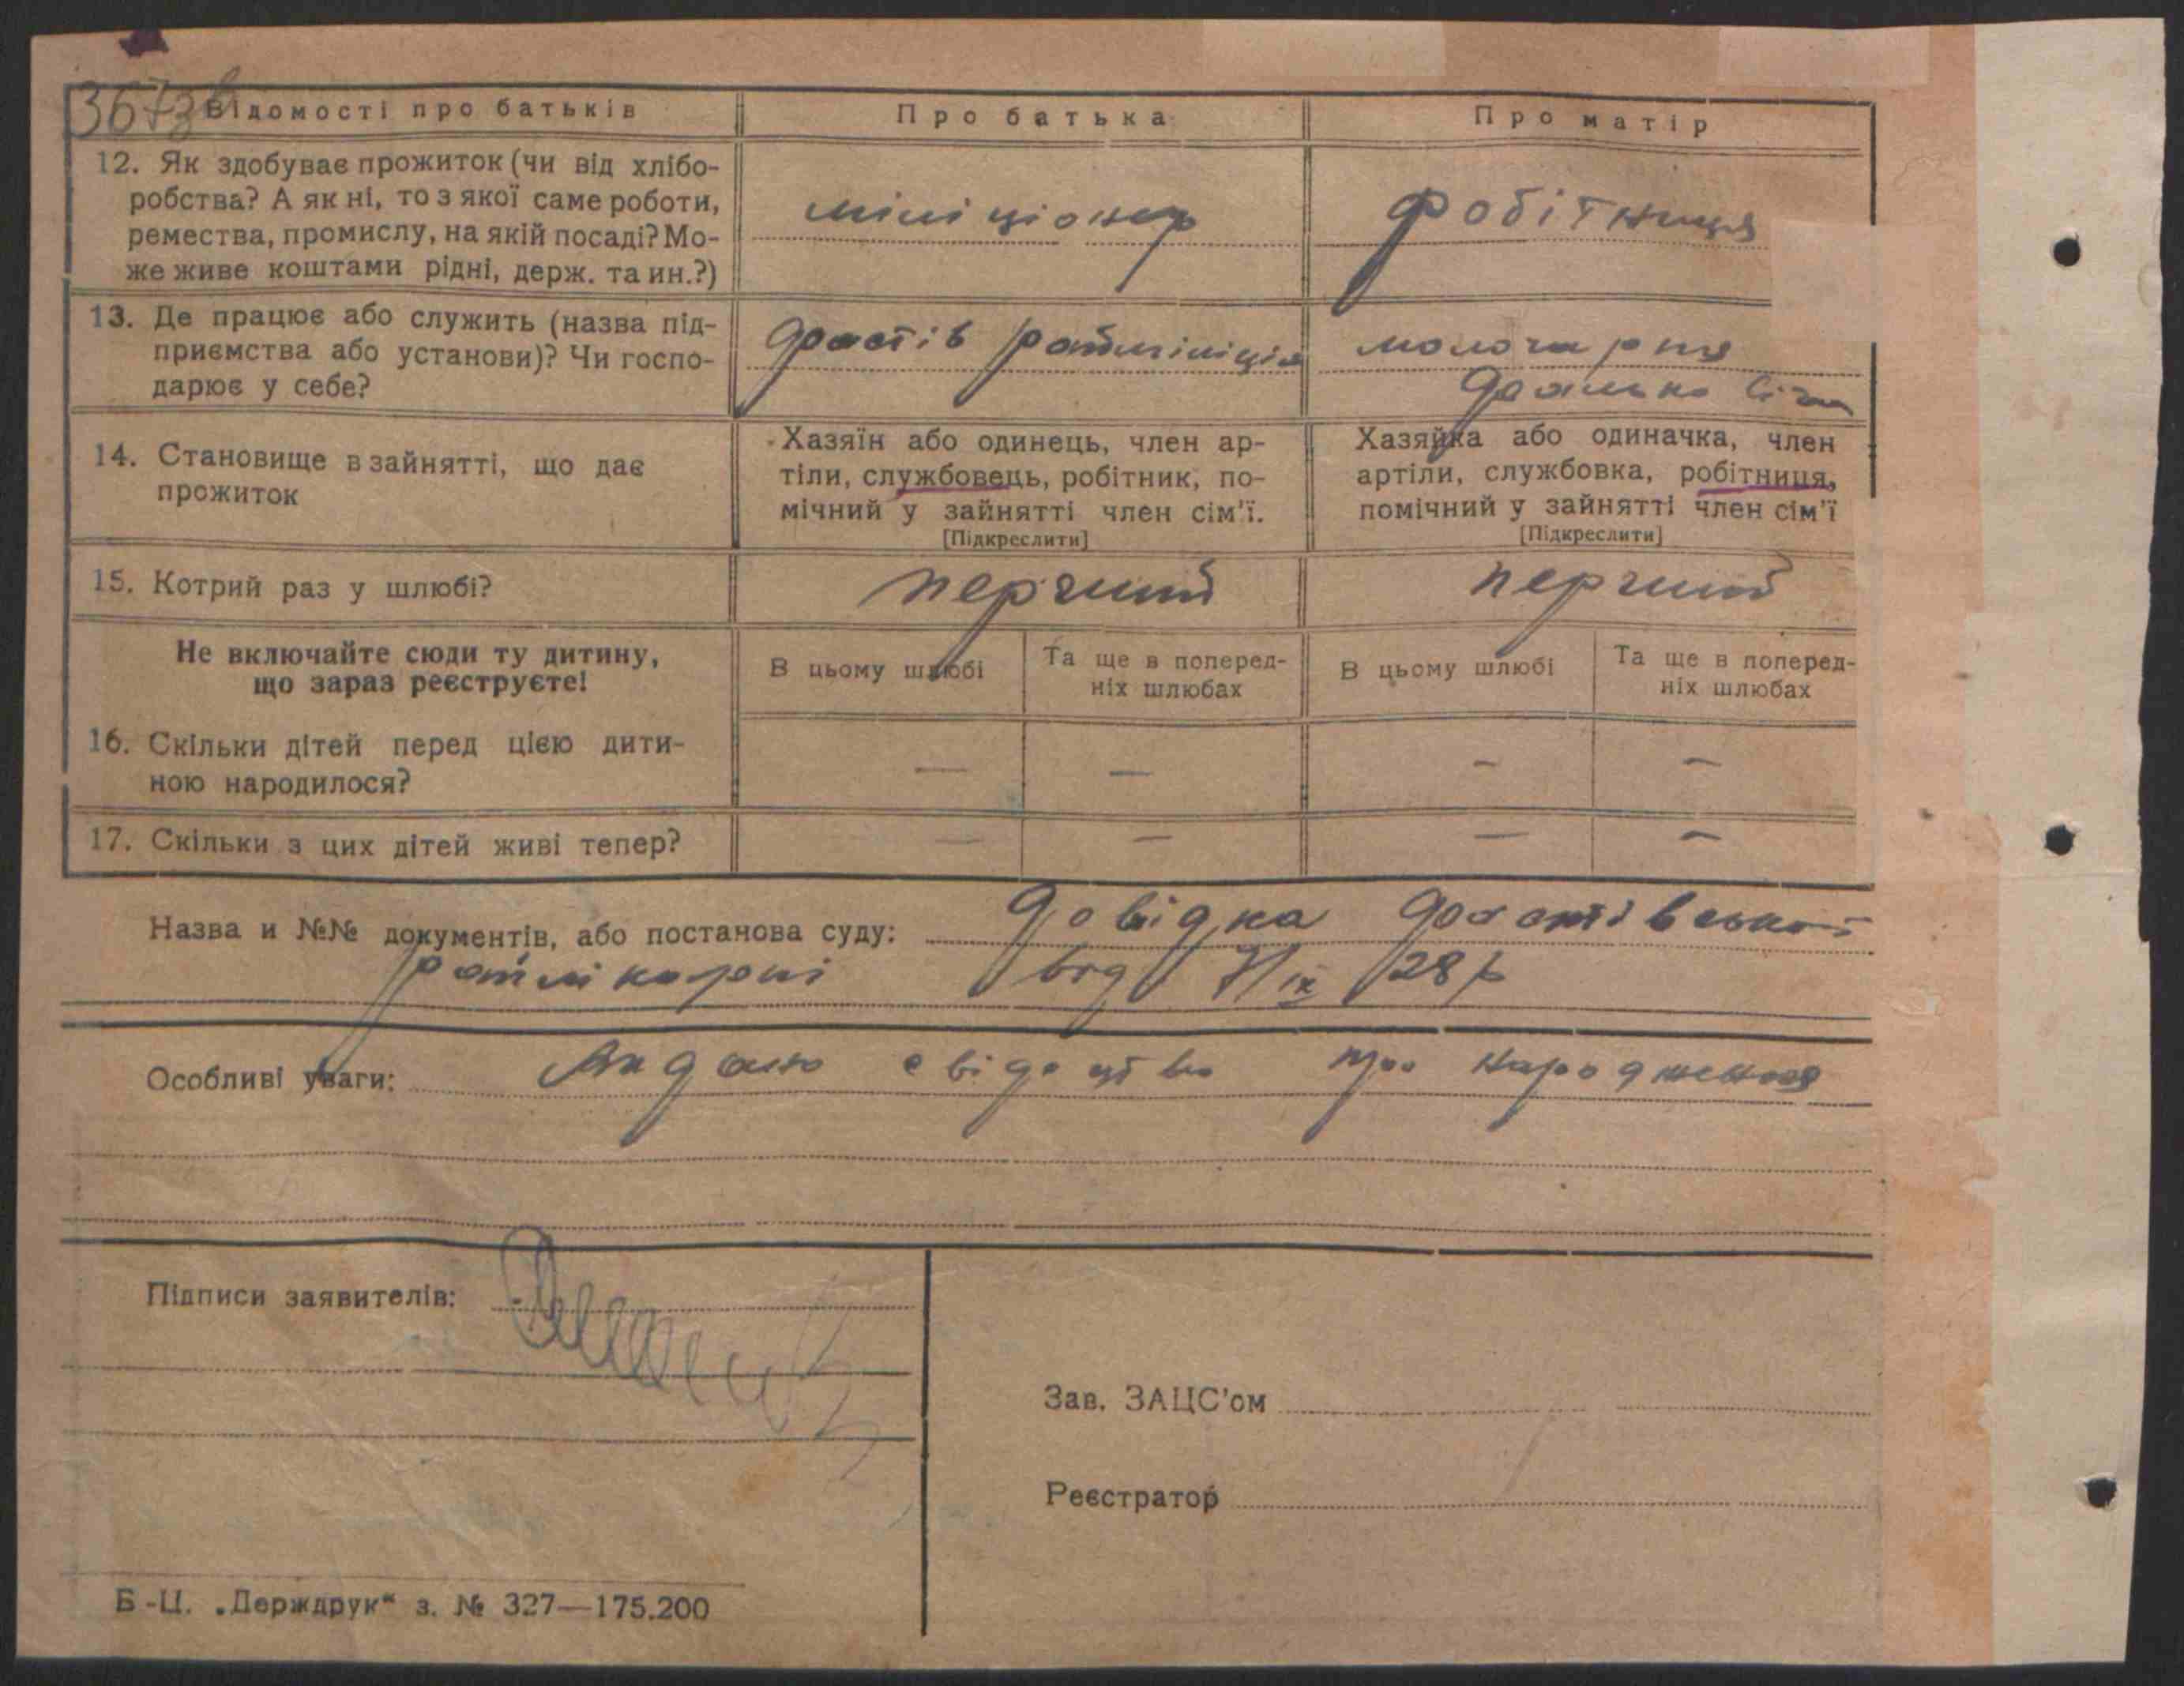 367зв
Відомості про батьків
Про батька
Про матір
12. Як здобуває прожиток (чи від хлібо-
робства? А як ні, то з якої саме роботи,
ремества, промислу, на якій посаді? Мо-
же живе коштами рідні, держ. та ин.?)
міліціонер
робітниця
13. Де працює або служить (назва під-
приємства або установи)? Чи госпо-
дарює у себе?
Фастів райміліція
молочарня
14. Становище в зайнятті, що дає
прожиток
Хазяїн або одинець, член ар-
тіли, службовець, робітник, по-
мічний у зайнятті член сім'ї.
[Підкреслити]
Хазяйка або одиначка, член
артіли, службовка, робітниця,
помічний у зайнятті член сім'ї
[Підкреслити]
15. Котрий раз у шлюбі?
перший
перший
Не включайте сюди ту дитину,
що зараз реєструєте!
В цьому шлюбі
Та ще в поперед-
ніх шлюбах
В цьому шлюбі
Та ще в поперед-
ніх шлюбах
16. Скільки дітей перед цією дити-
ною народилося?
— — — —
17. Скільки з цих дітей живі тепер?
— — — —
Назва и №№ документів, або постанова суду: Довідка Фастівської
райлікарні від 7/ІХ 28 р
Особливі уваги: Видано свідоцтво про народження
Підписи заявителів:
Зав. ЗАЦС'ом
Реєстратор
Б-Ц. „Держдрук“ з. № 327—175.200